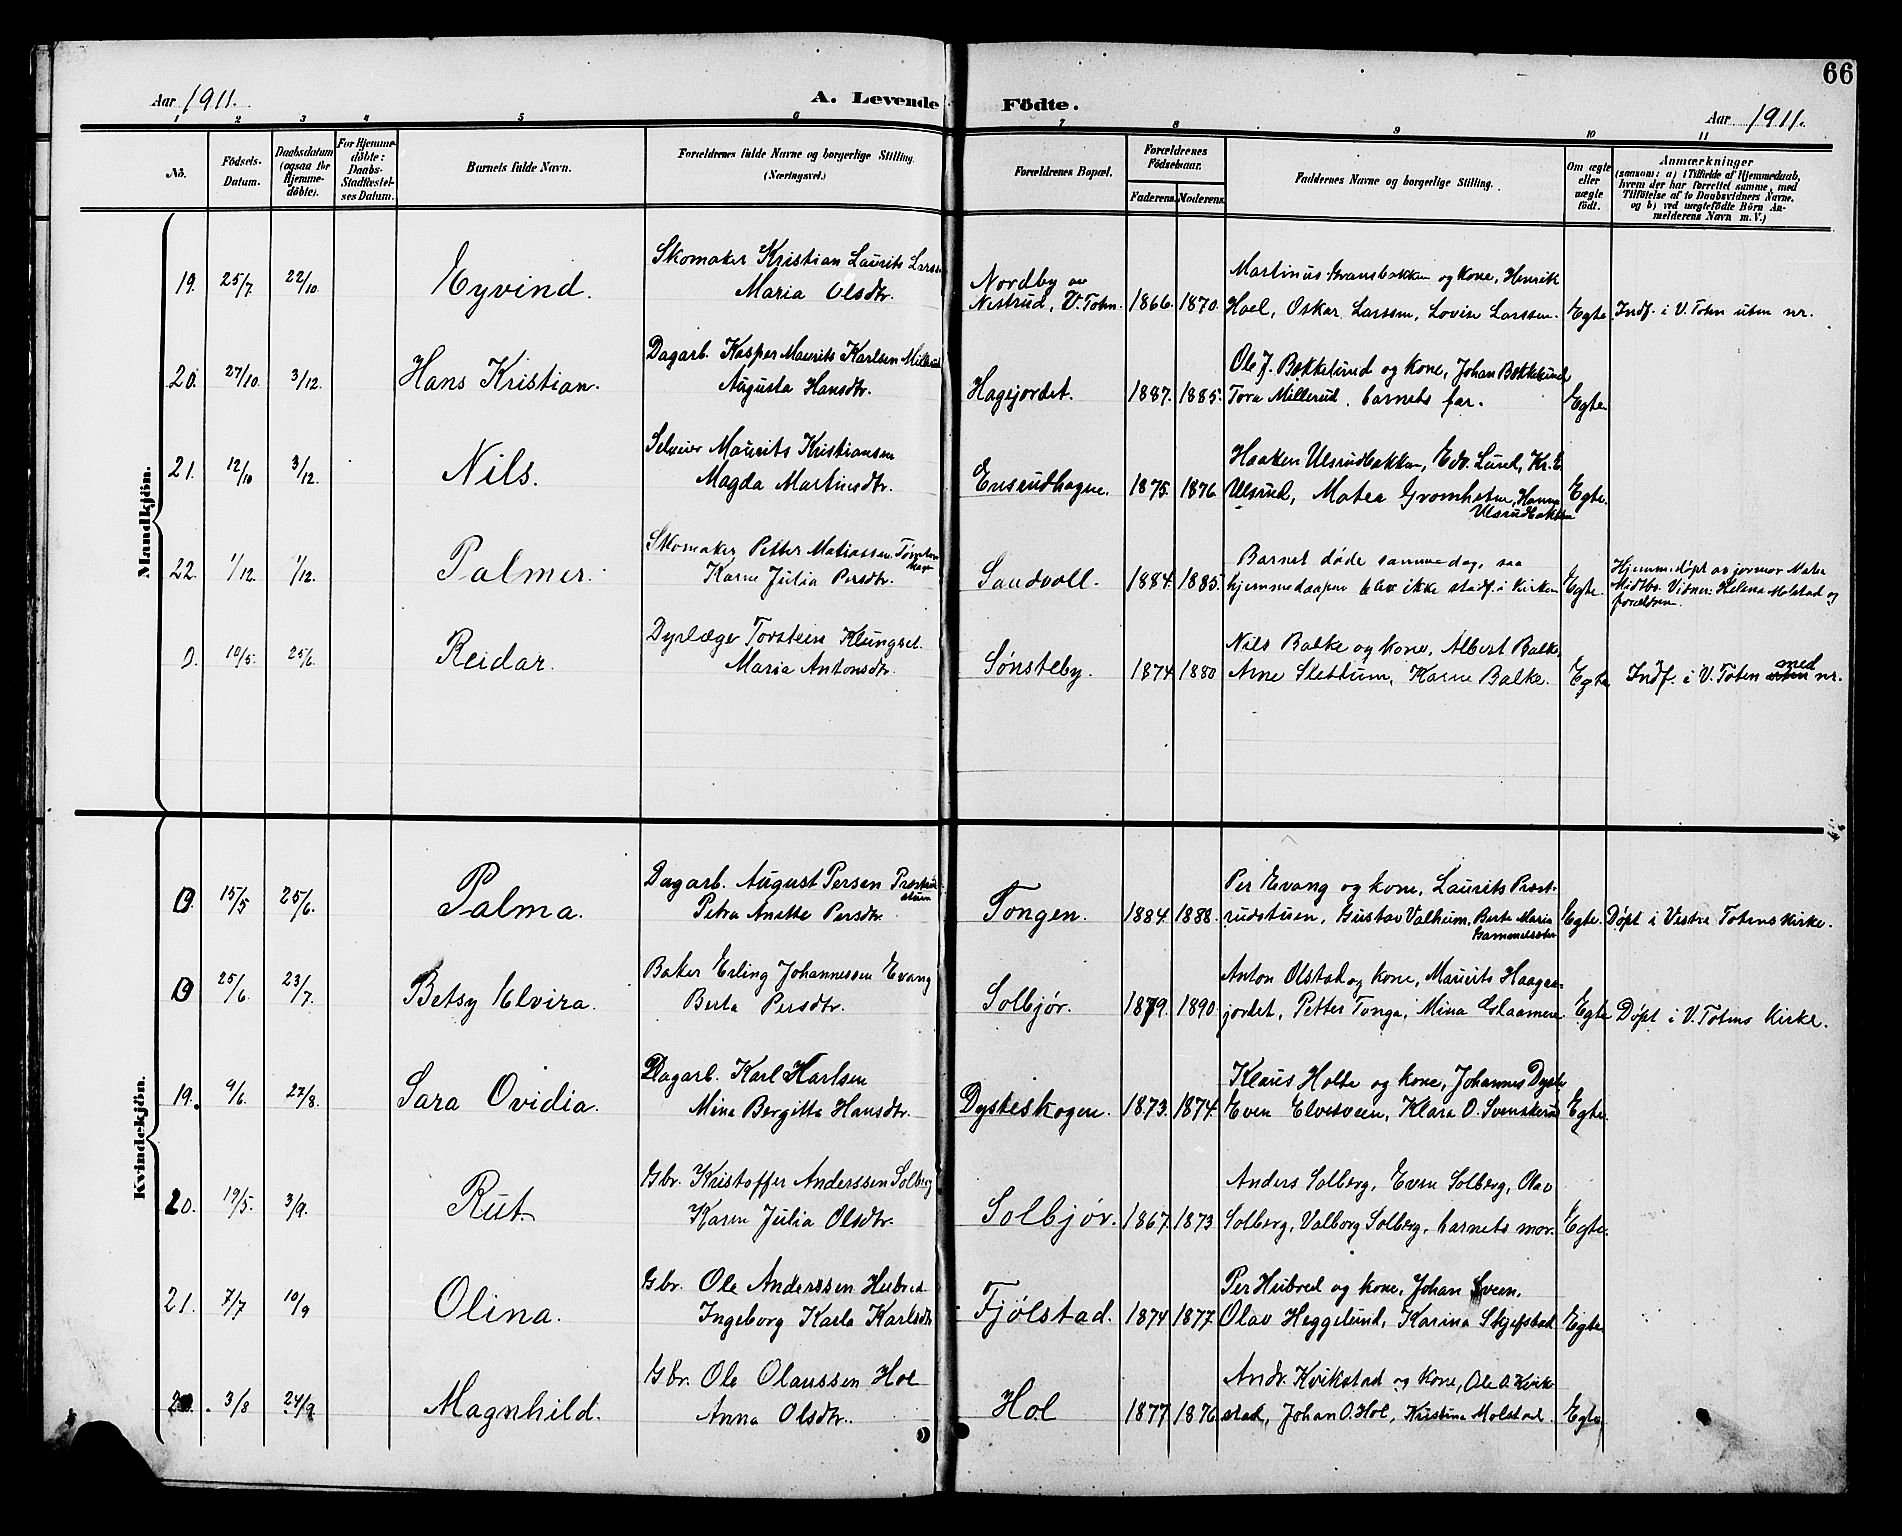 66
Aar 1911. A. Levende Födte. Aar 1911.
1 2 3 4 5 6 7 8 9 10 11
No.
Födsels-
Datum.
Daabsdatum
(ogsaa for
Hjemme-
döbte).
For Hjemme-
döbte:
Daabs-
Stadfæstel-
ses Datum.
Barnets fulde Navn.
Forældrenes fulde Navne og borgerlige Stilling.
(Næringsvei.)
Forældrenes Bopæl.
Forældrenes
Födselsaar.
Faderens. Moderens.
Faddernes Navne og borgerlige Stilling.
Om ægte
eller
uægte
födt.
Anmærkninger
(saasom: a) i Tilfælde af Hjemmedaab,
hvem der har forrettet samme, med
Tilföielse af to Daabsvidners Navne,
og b) ved uægtefödte Börn An-
melderens Navn m. V.)
Mandkjön.
19. 25/7 22/10. Eyvind.
Skomaker Kristian Laurits Larssen
Maria Olsdtr.
Nordby av
Nestrud, V. Toten. 1866. 1870.
Martinus Gransbakken og kone, Henrik
Hoel, Oskar Larssen, Lovise Larssen. Egte. Indf. i V. Toten uten nr.
20. 27/10. 3/12. Hans Kristian.
Dagarb. Kasper Maurits Karlsen Millerud
Augusta Hansdtr.
Hagejordet. 1887. 1885.
Ole J. Bøkkelund og kone, Johan Bøkkelund
Tora Millerud, barnets far. Egte.
21. 12/10 3/12. Nils.
Selveier Maurits Kristiansen
Magda Martinsdtr.
Ensrudhagen. 1875. 1876.
Haaken Ulsrudbakken, Edv. Lund, Kr. E
Ulsrud, Matea Gromheten, Hanna
Ulsrudbakken Egte.
22. 1/12. 1/12. Palmer.
Skomaker Petter Matiassen
Karen Julia Persdtr.
Sandvoll. 1884. 1885.
Barnet døde samme dag, saa
hjemmedaapen blev ikke stadf. i kirken Egte.
Hjemmedøpt av jormor Matea
Midtbö. Vidner: Helena Molstad og
forældrene.
0. 10/5. 25/6. Reidar.
Dyrlæge Torstein Klungset.
Maria Antonsdtr.
Sønsteby. 1874 1880
Nils Balke og kone, Albert Balke,
Arne Slettum, Karen Balke. Egte Indf. i V. Toten med nr.
Kvindekjön.
0. 15/5 25/6. Palma.
Dagarb. August Persen Præstrud-
stuen
Petra Anette Persdtr.
Tongen. 1884. 1888.
Per Evang og kone, Laurits Præst-
rudstuen, Gustav Valheim, Berte Maria
Gammelsæter Egte. Døpt i Vestre Totens kirke.
0 25/6. 23/7. Betsy Elvira.
Baker Erling Johannessen Evang
Berta Persdtr.
Solbjør. 1879. 1890.
Anton Olstad og kone, Maurits Haagaa-
jordet, Petter Tonga, Mina Glaameren Egte Døpt i V. Totens kirke.
19. 9/6. 27/8. Sara Ovidia.
Dagarb. Karl Karlsen
Mina Bergitta Hansdtr.
Dysteskogen. 1873. 1874.
Klaus Holte og kone, Johannes Dyste
Even Elvesveen, Klara O. Svenskerud Egte.
20. 19/5. 3/9. Rut.
Gbr. Kristoffer Anderssen Solberg
Karen Julia Olsdtr.
Solbjør. 1867. 1873
Anders Solberg, Even Solberg, Olav
Solberg, Valborg Solberg, barnets mor. Egte.
21. 7/7 10/9 Olina.
Gbr. Ole Anderssen Hubred
Ingeborg Karla Karlsdtr
Fjølstad. 1874 1877.
Per Hubred og kone, Johan Sveen,
Olav Heggelund, Karina Skjefstad Egte
3/8 24/9 Magnhild.
Gbr. Ole Olaussen Hol
Anna Olsdtr.
Hol 1877 1876
Andr. Kvikstad og kone, Ole A. Kvik-
stad, Johan O. Hol, Kristina Molstad. Egte